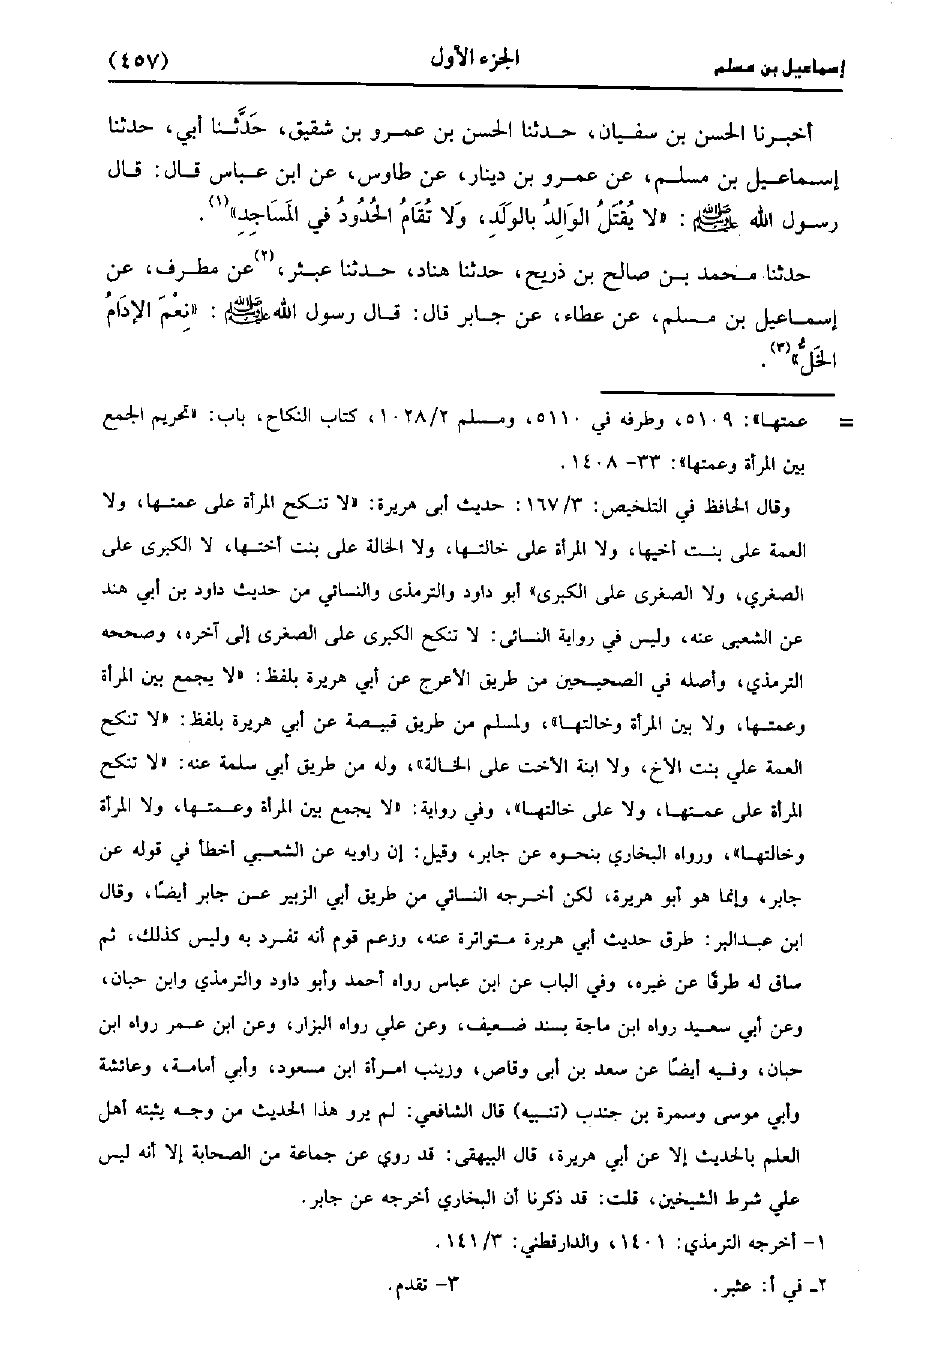 إسماعيل بن مسلم الجزء الأول (٤٥٧)
أخبرنا الحسن بن سفيان، حدثنا الحسن بن عمرو بن شقيق، حَدَّثنا أبي، حدثنا
إسماعيل بن مسلم، عن عمرو بن دينار، عن طاوس، عن ابن عباس قال: قال
رسول الله ﷺ: «لا يُقْتَلُ الوَالِدُ بالوَلَدِ، وَلَا تُقَامُ الحُدُودُ في المَسَاجِدِ»(١).
حدثنا محمد بن صالح بن ذريح، حدثنا هناد، حدثنا عبثر،(٢) عن مطرف، عن
إسماعيل بن مسلم، عن عطاء، عن جابر قال: قال رسول الله ﷺ: «نِعْمَ الإدَامُ
الخَلُّ»(٣).
= عمتها»: ٥١٠٩، وطرفه في ٥١١٠، ومسلم ١٠٢٨/٢، كتاب النكاح، باب: «تحريم الجمع
بين المرأة وعمتها»: ٣٣- ١٤٠٨.
وقال الحافظ في التلخيص: ١٦٧/٣: حديث أبى هريرة: «لا تنكح المرأة على عمتها، ولا
العمة على بنت أخيها، ولا المرأة على خالتها، ولا الخالة على بنت أختها، لا الكبرى على
الصغري، ولا الصغرى على الكبرى» أبو داود والترمذى والنسائي من حديث داود بن أبي هند
عن الشعبى عنه، وليس في رواية النسائي: لا تنكح الكبرى على الصغرى إلى آخره، وصححه
الترمذي، وأصله في الصحيحين من طريق الأعرج عن أبي هريرة بلفظ: «لا يجمع بين المرأة
وعمتها، ولا بين المرأة وخالتها»، ولمسلم من طريق قبيصة عن أبي هريرة بلفظ: «لا تنكح
العمة علي بنت الأخ، ولا ابنة الأخت على الخالة»، وله من طريق أبي سلمة عنه: «لا تنكح
المرأة على عمتها، ولا على خالتها»، وفي رواية: «لا يجمع بين المرأة وعمتها، ولا المرأة
وخالتها»، ورواه البخاري بنحوه عن جابر، وقيل: إن راويه عن الشعبي أخطأ في قوله عن
جابر، وإنما هو أبو هريرة، لكن أخرجه النسائي من طريق أبي الزبير عن جابر أيضًا، وقال
ابن عبدالبر: طرق حديث أبي هريرة متواترة عنه، وزعم قوم أنه تفرد به وليس كذلك، ثم
ساق له طرقًا عن غيره، وفي الباب عن ابن عباس رواه أحمد وأبو داود والترمذي وابن حبان،
وعن أبي سعيد رواه ابن ماجة بسند ضعيف، وعن علي رواه البزار، وعن ابن عمر رواه ابن
حبان، وفيه أيضًا عن سعد بن أبى وقاص، وزينب امرأة ابن مسعود، وأبي أمامة، وعائشة
وأبي موسى وسمرة بن جندب (تنبيه) قال الشافعي: لم يرو هذا الحديث من وجه يثبته أهل
العلم بالحديث إلا عن أبي هريرة، قال البيهقى: قد روي عن جماعة من الصحابة إلا أنه ليس
علي شرط الشيخين، قلت: قد ذكرنا أن البخاري أخرجه عن جابر.
١- أخرجه الترمذي: ١٤٠١، والدارقطني: ١٤١/٣.
٢- في أ: عثبر. ٣- تقدم.